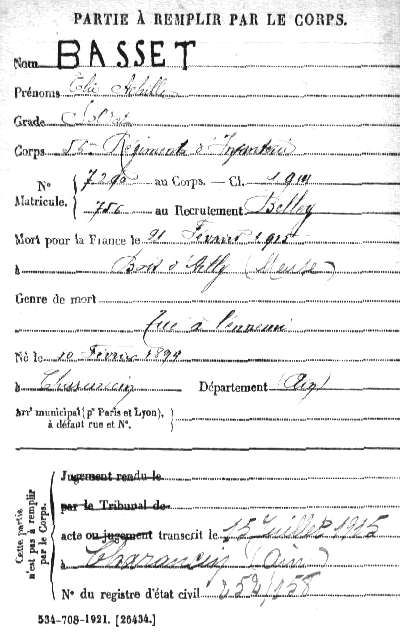 PARTIE À REMPLIR PAR LE CORPS.
Nom BASSET
Prénoms Elie Achille
Grade
Corps 56e Régiment d'Infanterie
N° Matricule. 7290 au Corps. — Cl. 1914
756 au Recrutement Belley
Mort pour la France le 21 Février 1915
à Bois d'Ailly (Meuse)
Genre de mort
Tué à l'ennemi
Né le 10 Février 1894
à Charancin Département (Ain)
Arr' municipal (p' Paris et Lyon),
à défaut rue et N°.
Cette partie n'est pas à remplir par le Corps.
Jugement rendu le
par le Tribunal de
acte ou jugement transcrit le 15 Juillet 1915
à Charancin (Ain)
N° du registre d'état civil 252/158
534-708-1921. [26434.]